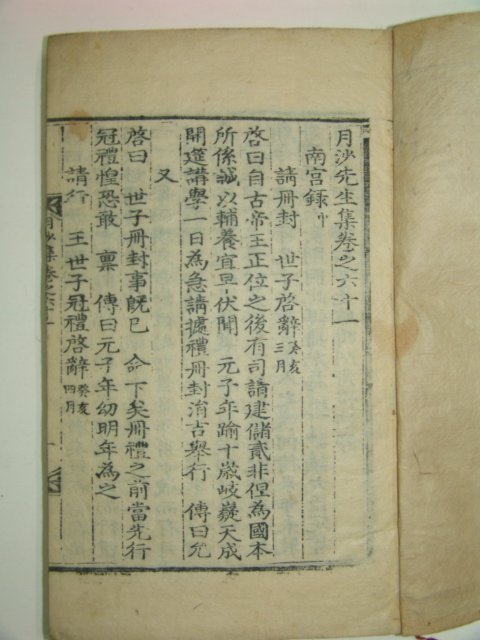 月沙先生集卷之六十一
南宮錄 中
請冊封 世子啓辭 癸亥三月
啓曰自古帝王正位之後有司請建儲貳非但爲國本
所係誠以輔養宜早伏聞 元子年踰十歲岐嶷天成
開筵講學一日爲急請據禮冊封 古舉行 傳曰允
又
啓曰 世子冊封事旣已 命下矣冊禮之前當先行
冠禮惶恐敢 稟 傳曰元子年幼明年爲之
請行 王世子冠禮啓辭 癸亥四月
月沙集 卷之六十一 一